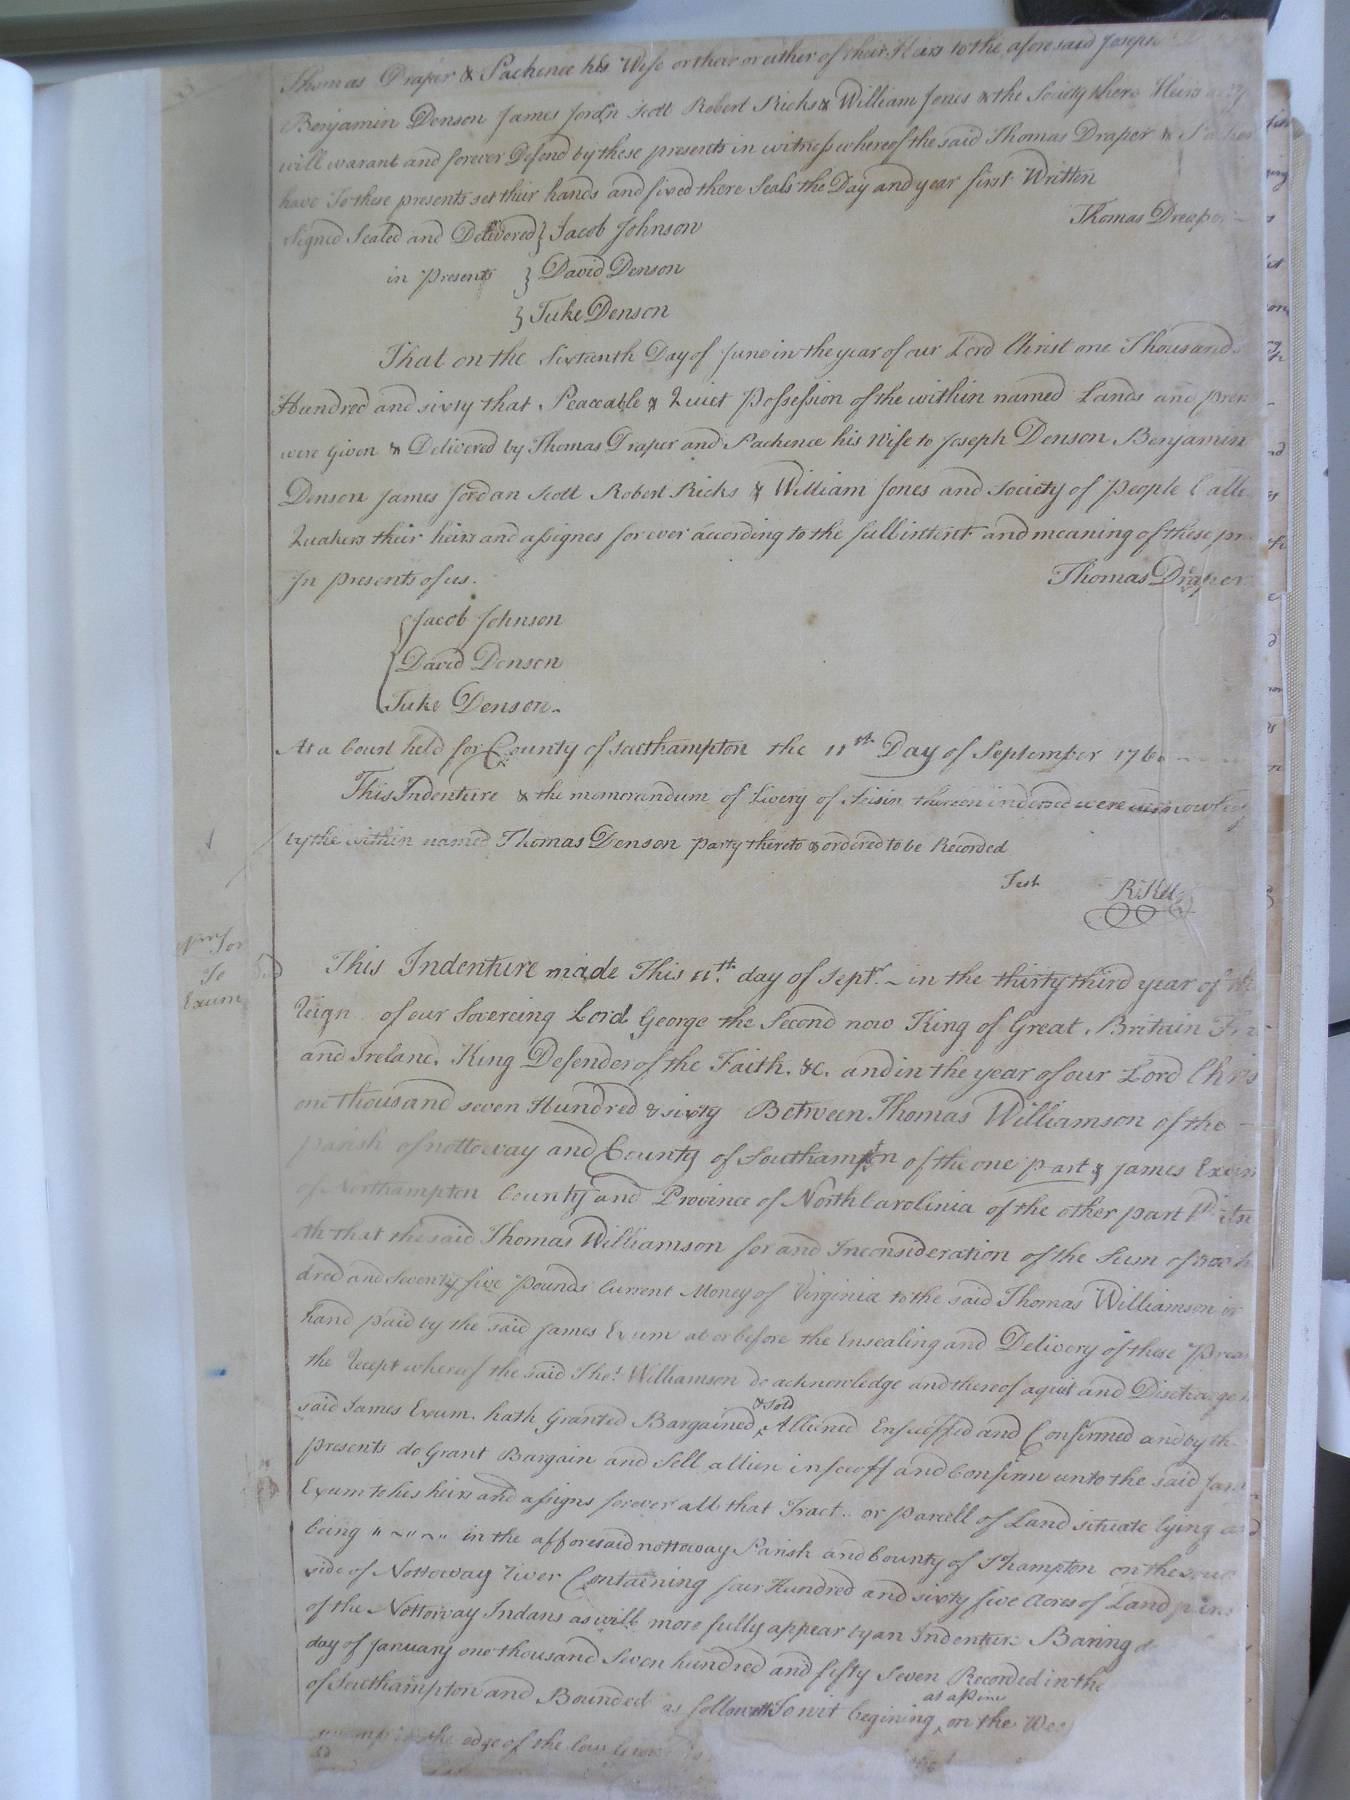 Thomas Draper & Pachence his Wife or their or either of their Heirs to the afore said Joseph
Benjamin Denson James Jordn Scott Robert Ricks & William Jones & the Society there Heirs
will warant and forever Defend by these presents in witness whereof the said Thomas Draper &
have To these presents set their hands and fixed there Seals the Day and year first Written
Thomas Dreaper
Signed Sealed and Delivered } Jacob Johnson
in presents } David Denson
} Tuke Denson
That on the Sixteanth Day of June in the year of our Lord Christ one Thousand
Hundred and sixty that Peaceable & Quiet Possession of the within named Lands and
were given & Delivered by Thomas Draper and Pachence his Wife to Joseph Denson Benjamin
Denson James Jordan Scott Robert Ricks & William Jones and Society of People
Quakers their heirs and assignes forever according to the full intent and meaning of these
In presents of us.
Thomas Draper
Jacob Johnson
David Denson
Tuke Denson
At a Court held for County of Southampton the 11th Day of September 1760
This Indenture & the memorandum of Livery of Seisin thereon indorsed were
by the within named Thomas Denson party thereto & ordered to be Recorded
Test
To
Exum
This Indenture made This 11th day of Septr in the thirty third year of the
Reign of our Sovereing Lord George the Second now King of Great Britain
and Ireland, King Defender of the Faith. &c. and in the year of our Lord Chris
one thousand seven Hundred & sixty Between Thomas Williamson of the
parish of nottoway and County of Southampton of the one part & James Exum
of Northampton County and Province of North Carolinia of the other part
th that the said Thomas Williamson for and Inconsideration of the Sum of
dred and Seventy five Pounds Current Money of Virginia to the said Thomas Williamson in
hand paid by the said James Exum at or before the Ensealing and Delivery of these
the Recept whereof the said Thos Williamson do acknowledge and thereof aquit and Discharge
said James Exum. hath Granted Bargained & Sold Alliened Enfeoffed and Confirmed and by
presents do Grant Bargain and Sell allien infeoff and Confirm unto the said
Exum to his heirs and assigns forever all that Tract or parcell of Land situate lying
being in the afforesaid nottoway Parish and County of S'hampton on the
side of Nottoway River Containing four Hundred and sixty five Acres of Land
of the Nottoway Indans as will more fully appear by an Indenture Baring
day of January one thousand Seven hundred and fifty Seven Recorded in the
of Southampton and Bounded as followeth To wit begining at a pine on the
the edge of the low